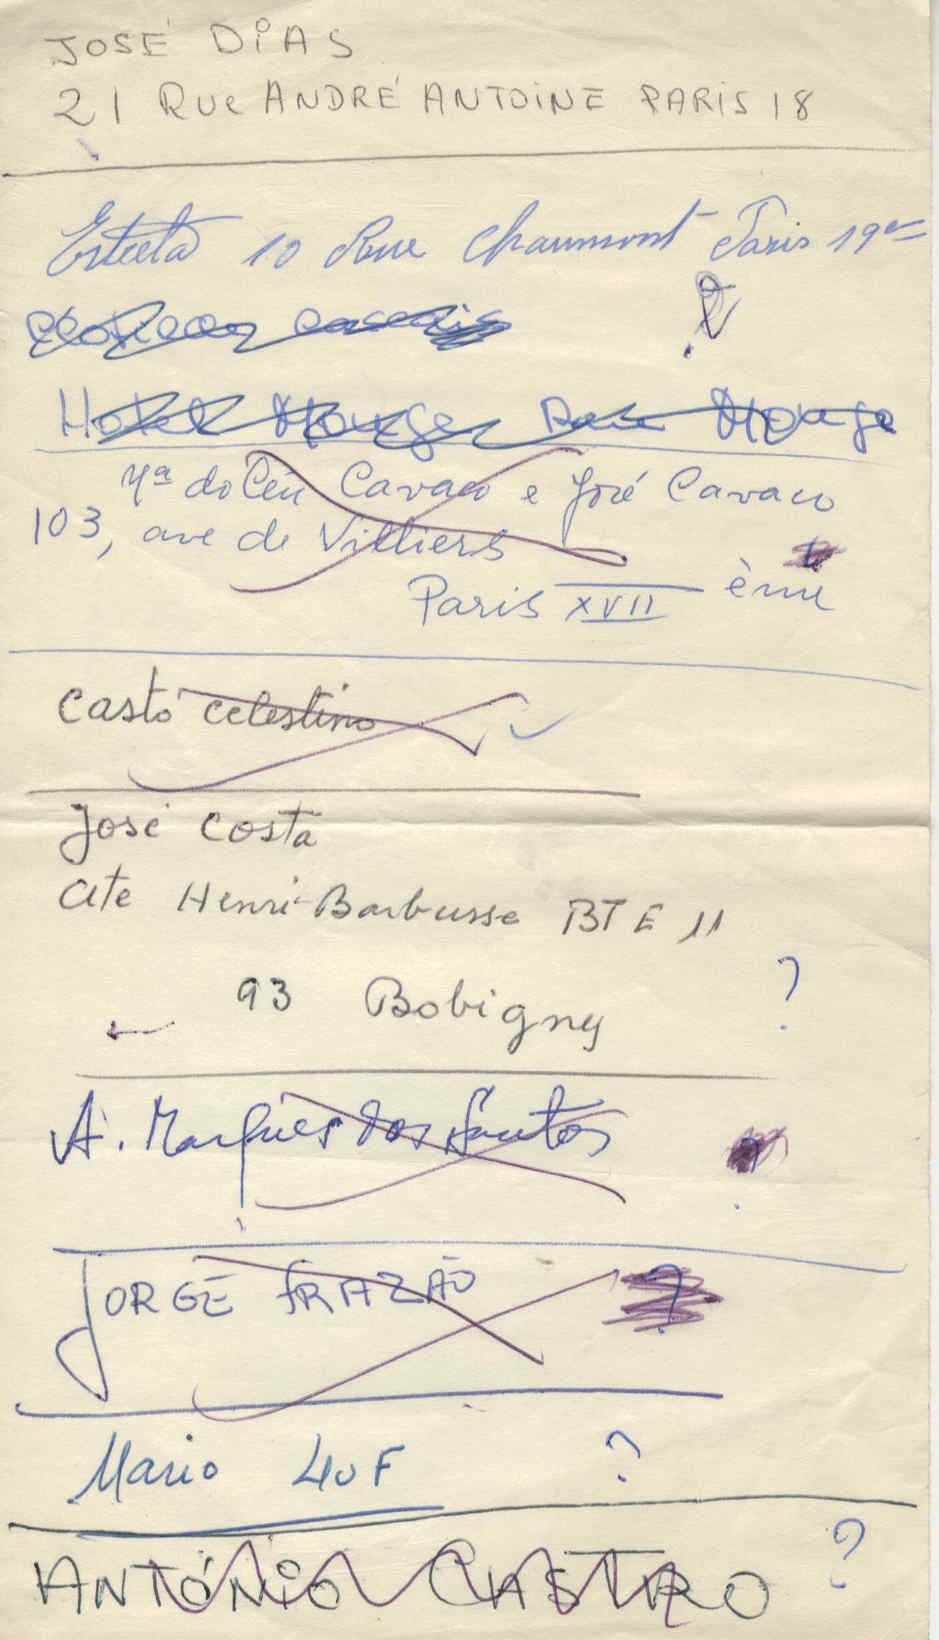 JOSÉ DIAS
21 RUE ANDRÉ ANTOINE PARIS 18
10 Rue Chaumont Paris 19e
?
Hotel Monge Rue Monge
Mª do Céu Cavaco e José Cavaco
103, ave de Villiers
Paris XVII ème
Casto Celestino
José Costa
Cite Henri-Barbusse BT E 11
93 Bobigny
?
A. Marques dos Santos
?
JORGE FRAZÃO ?
Mario 40F ?
ANTÓNIO CASTRO ?